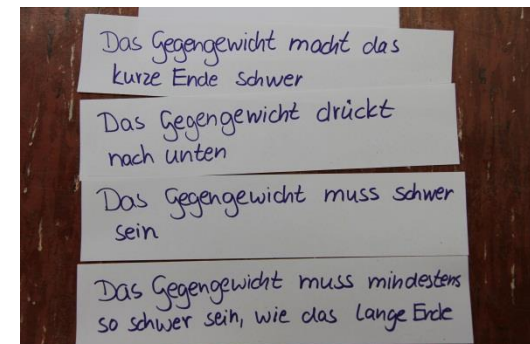 Das Gegengewicht macht das
kurze Ende schwer
Das Gegengewicht drückt
nach unten
Das Gegengewicht muss schwer
sein
Das Gegengewicht muss mindestens
so schwer sein, wie das lange Ende